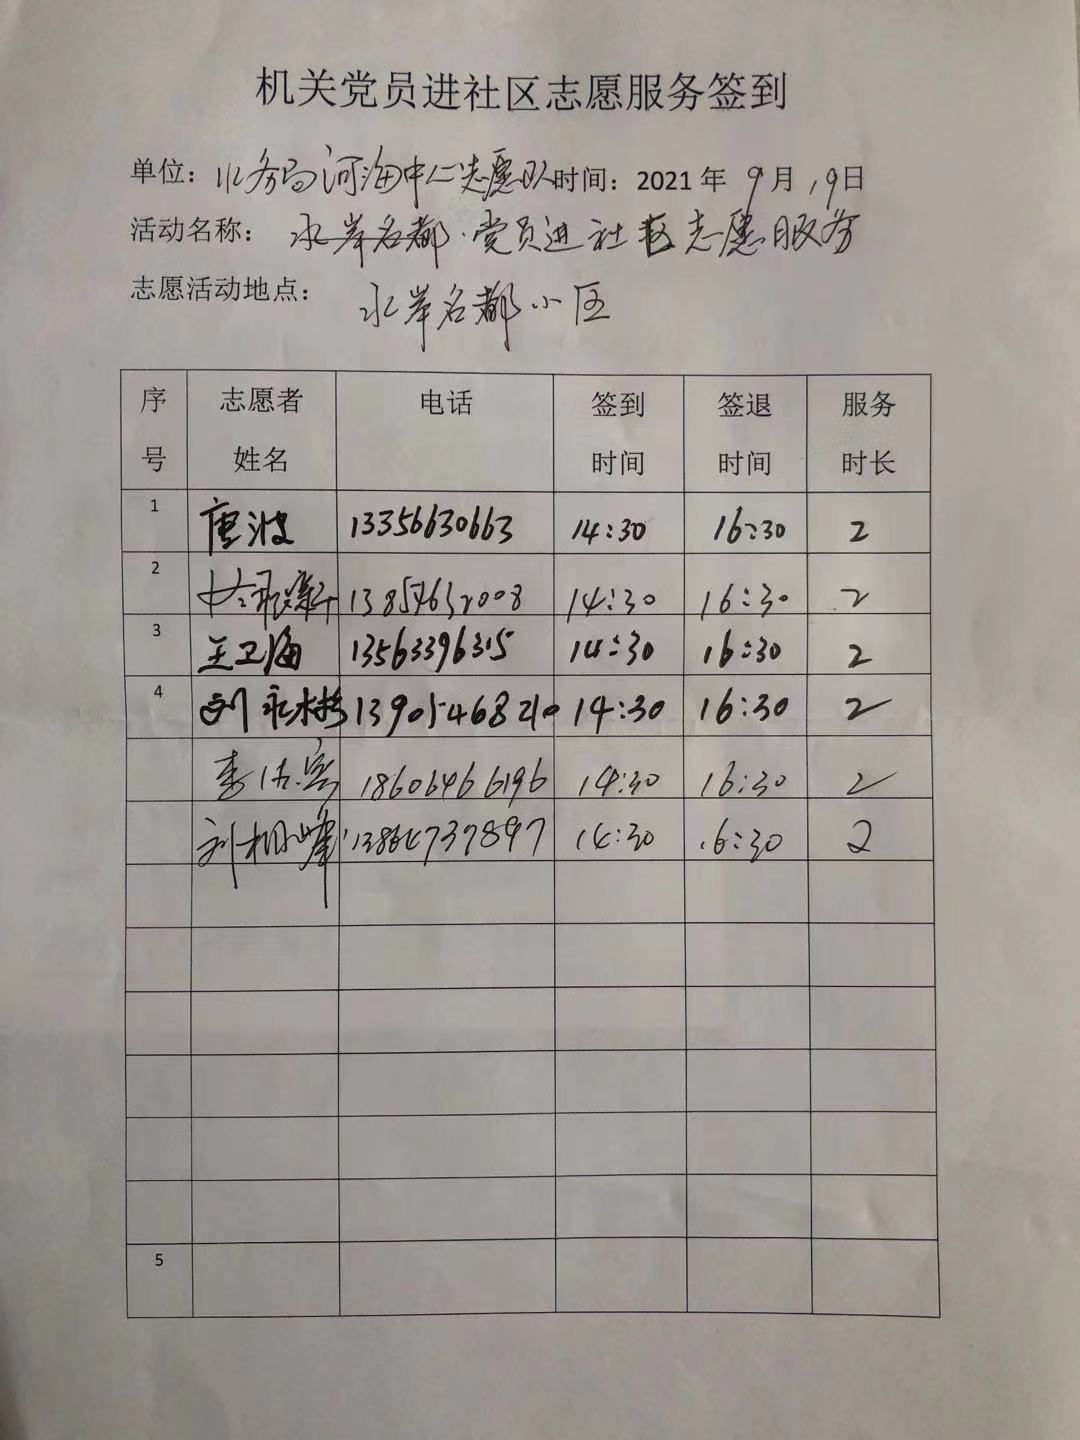 机关党员进社区志愿服务签到
单位：水务局河海中心志愿队时间：2021年 9月 19日
活动名称：水岸名都·党员进社区志愿服务
志愿活动地点：水岸名都小区
序号 志愿者姓名 电话 签到时间 签退时间 服务时长
1 唐波 13356630663 14:30 16:30 2
2 14:30 16:30 2
3 王卫海 13563396315 14:30 16:30 2
4 刘 13905468210 14:30 16:30 2
李 18606466196 14:30 16:30 2
刘 峰 14:30 16:30 2
5